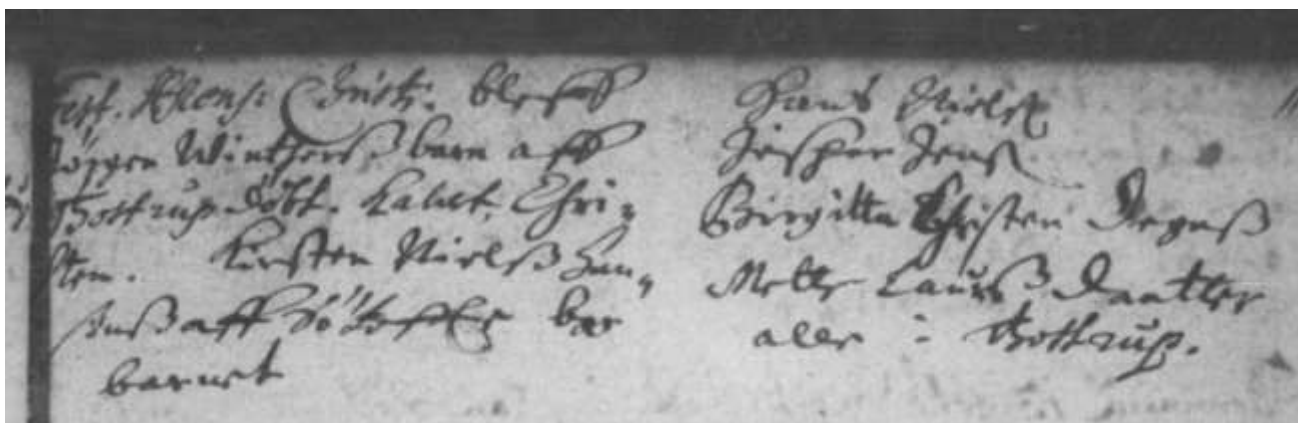 Fest. Ascens: Christi. bleff
Jörgen Winthers barn aff
Gottrup döbt. kaldt. Chri-
sten. Kirsten Nielß Han-
ßuß aff bar
barnet
Hans Nielß
Jens
Birgitta Christen Degnß
Mette Laurß Daatter
alle i Gottrup.